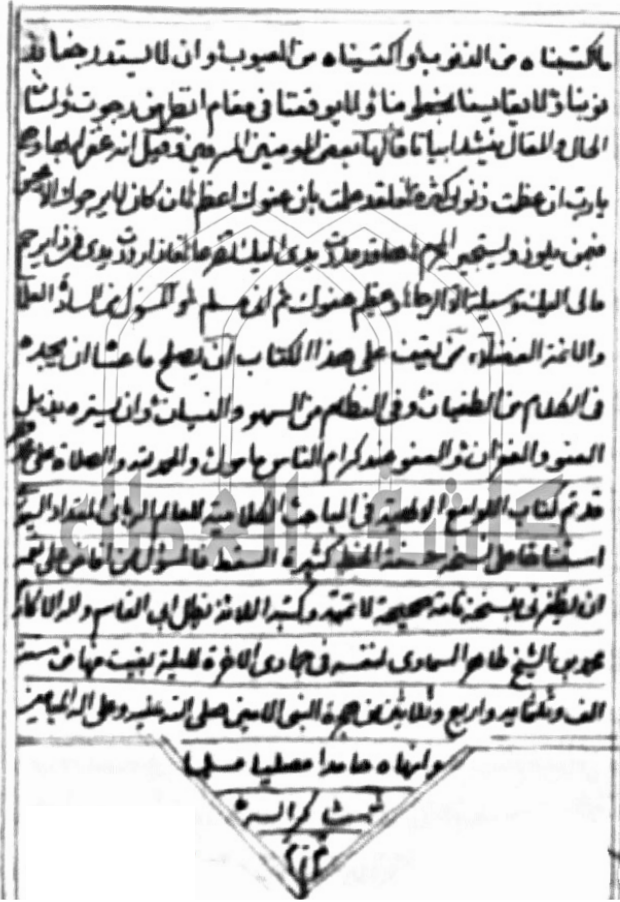 ما كتبناه من الذنوب واكتسبناه من العيوب وان لا يستدرجنا
ذنوبنا ولا يقايسنا بخطايانا ولا يوقفنا في مقام
الحال والمقال ينشد ابياتا قالها بعض المومنين المسرفين وقيل انه
يا رب ان عظمت ذنوبي كثرة فلقد علمت بان عفوك اعظم ان كان لا يرجوك الا محسن
فبمن يلوذ ويستجير المجرم مددت يدي اليك تضرعا فاذا رددت يدي فمن ذا يرحم
مالي اليك وسيلة الا الرجا وعظيم عفوك ثم اني مسلم والمسئول من السادة العلماء
والائمة الفضلاء من يقف على هذا الكتاب ان يصلح ما عسا ان يجده
في الكلام من الطغيان وفي النظام من السهو والنسيان وان يستره بذيل
العفو والغفران والعفو عند كرام الناس مامول والحمد لله والصلاة على
قد تم كتاب اللوامع الالهية في المباحث الكلامية للعالم الرباني المقداد
استنساخا على نسخة حسنة الخط كثيرة السقط فالمسؤل من افاض على
ان يظفرني بنسخة تامة صحيحة كتبه
محمد بن الشيخ طاهر السماوي لنفسه في جمادى الاخرة لليلة بقيت منها من سنة
الف وثلثمايه واربع وثلاثين من هجرة النبي الامين صلى الله عليه وعلى اله الميامين
وانهاه حامدا مصليا مسلما
كاشف الغطاء